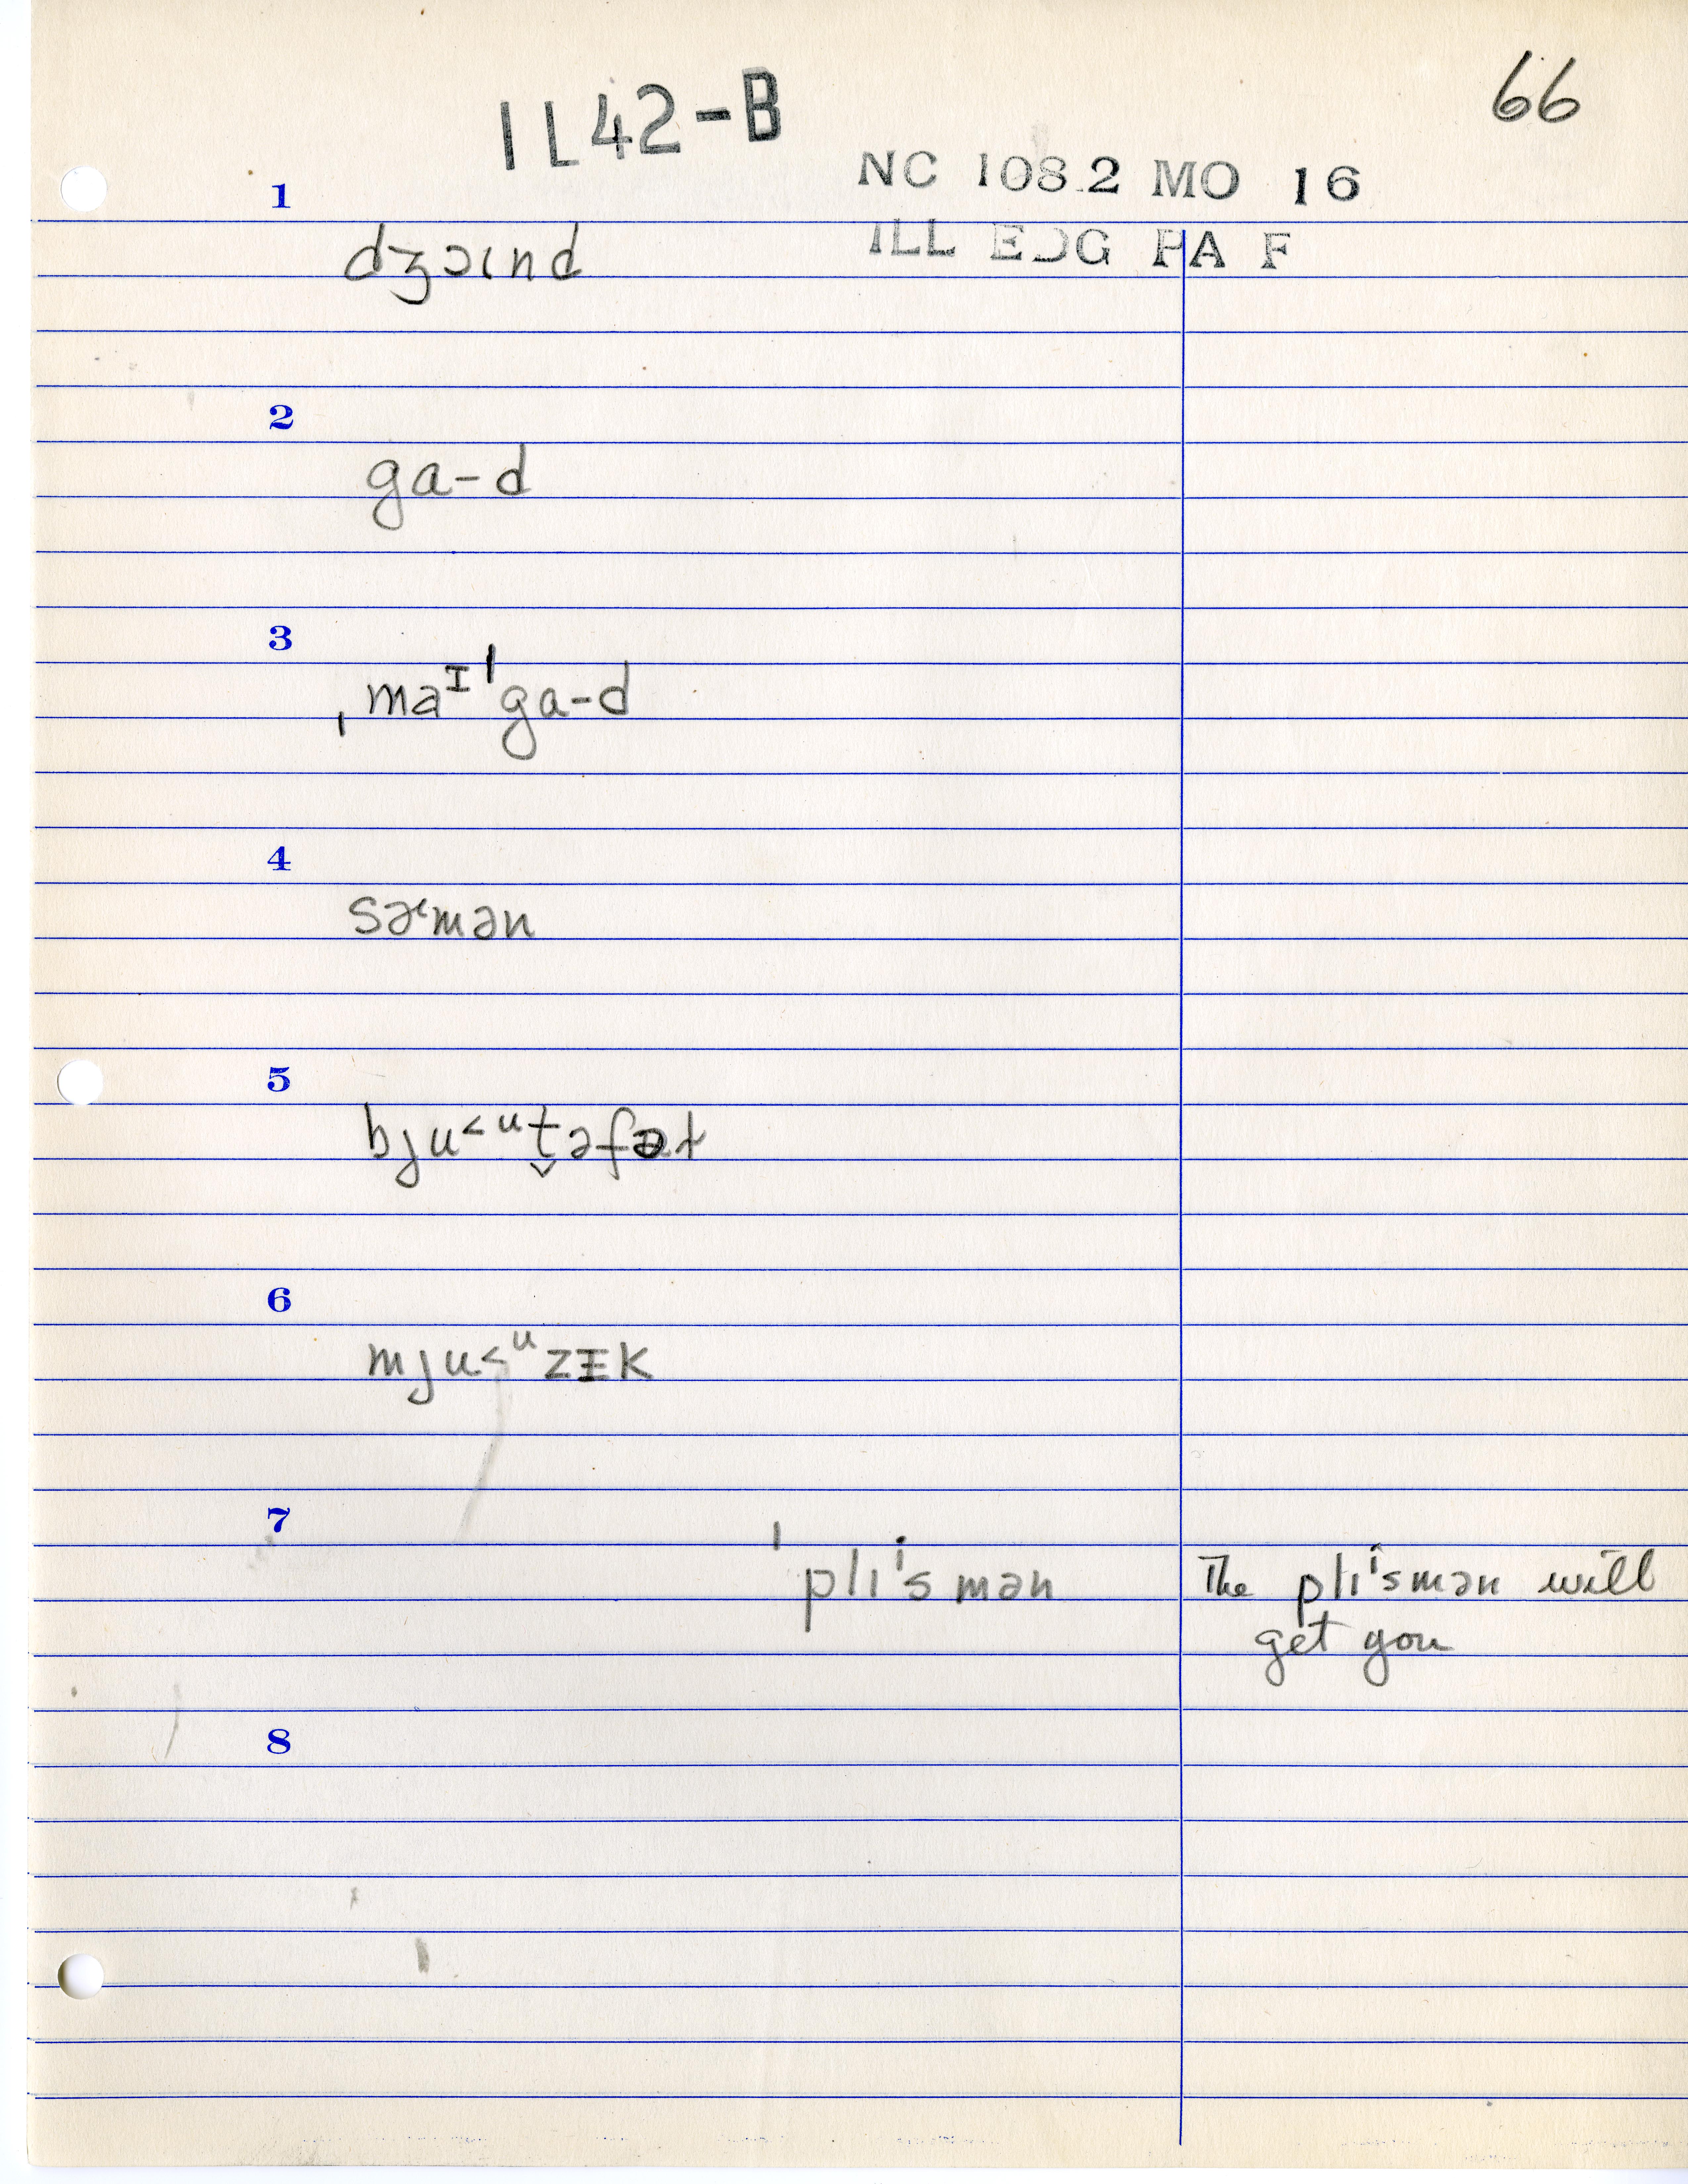 66
IL42-B
NC 108.2 MO 16
ILL EDG PA F
1
dʒɔɪnd
2
ga-d
3
ˌmaᴵˈga-d
4
sɚmən
5
bɟu<ᵘt̬əfəɫ
6
mɟu<ᵘzɪk
7
ˈplıⁱsmən The plıⁱsmən will
get you
8